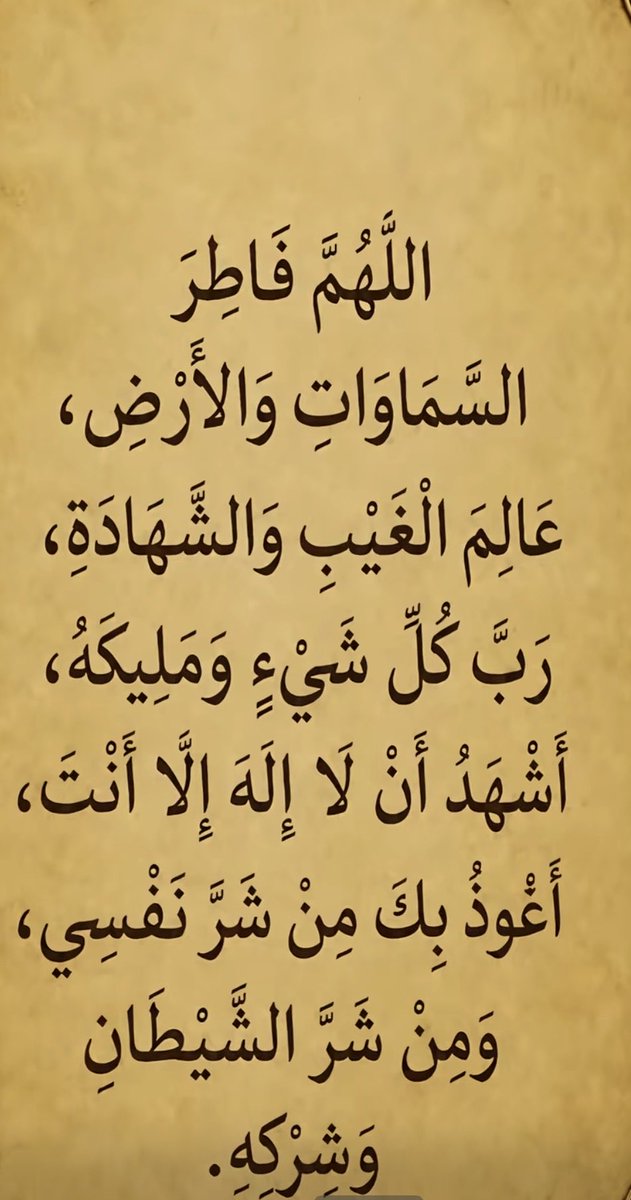 اللَّهُمَّ فَاطِرَ
السَّمَاوَاتِ وَالأَرْضِ،
عَالِمَ الْغَيْبِ وَالشَّهَادَةِ،
رَبَّ كُلِّ شَيْءٍ وَمَلِيكَهُ،
أَشْهَدُ أَنْ لَا إِلَهَ إِلَّا أَنْتَ،
أَغْوذُ بِكَ مِنْ شَرَّ نَفْسِي،
وَمِنْ شَرَّ الشَّيْطَانِ
وَشِرْكِهِ.